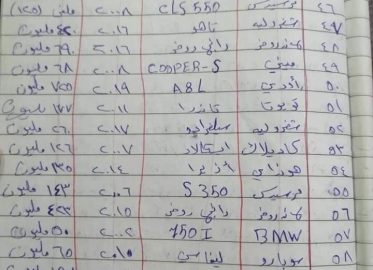 ٤٦ مرسيدس CLS 550 ٢٠٠٨ مليون (١٢٥)
٤٧ شفروليه تاهو ٢٠١٦ مليون
٤٨ رانج روفر ٢٠١٦ ٦٩٠ مليون
٤٩ ميني COOPER-S ٢٠٠٨ ٦٨ مليون
٥٠ أودي A8L ٢٠١٩ ٧٥٠ مليون
٥١ تويوتا ٢٠١١ ١٧٧ مليون
٥٢ شفروليه سلفرادو ٢٠١٧ مليون
٥٣ كاديلاك اسكاليد ٢٠٠٧ ١٤٦ مليون
٥٤ هونداي أزيرا ٢٠١٤ مليون
٥٥ مرسيدس S 350 ٢٠٠٦ ١٤٣ مليون
٥٦ رانج روفر ٢٠١٥ ٤٢٣ مليون
٥٧ BMW 750 I ٢٠٠٢ مليون
٥٨ سوبارو ليغاسي ٦٥ مليون